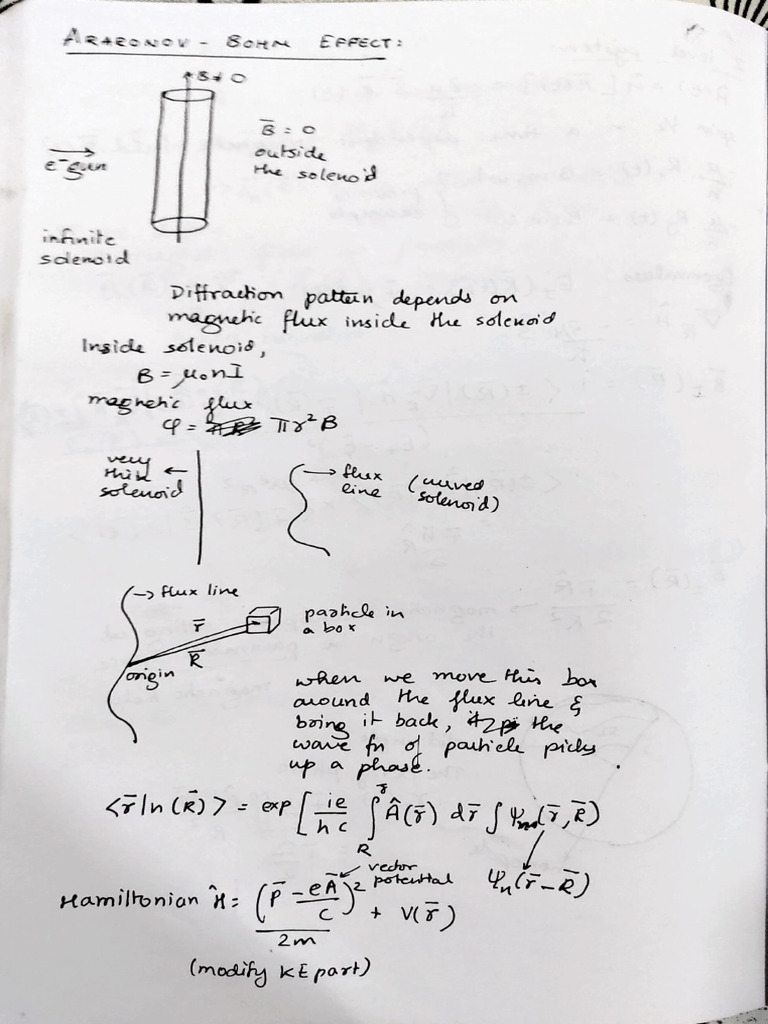 ARARONOV - BOHM EFFECT:
B≠0
B̅ = 0
outside
the solenoid
e⁻gun
infinite
solenoid
Diffraction pattern depends on
magnetic flux inside the solenoid
Inside solenoid,
B = μ₀nI
magnetic flux
φ = πr²B
very
thin
solenoid
flux
line
(curved
solenoid)
flux line
r̅
R̅
origin
particle in
a box
when we move this box
around the flux line &
bring it back, the
wave fn of particle picks
up a phase.
<r̅|n(R̅)> = exp [ie/ħc ∫_R^r̅ Â(r̅) dr̅ ∫ ψₙ(r̅,R̅)
ψₙ(r̅-R̅)
vector
potential
Hamiltonian Ĥ = (p̅ - eA̅/c)²/2m + V(r̅)
(modify KE part)